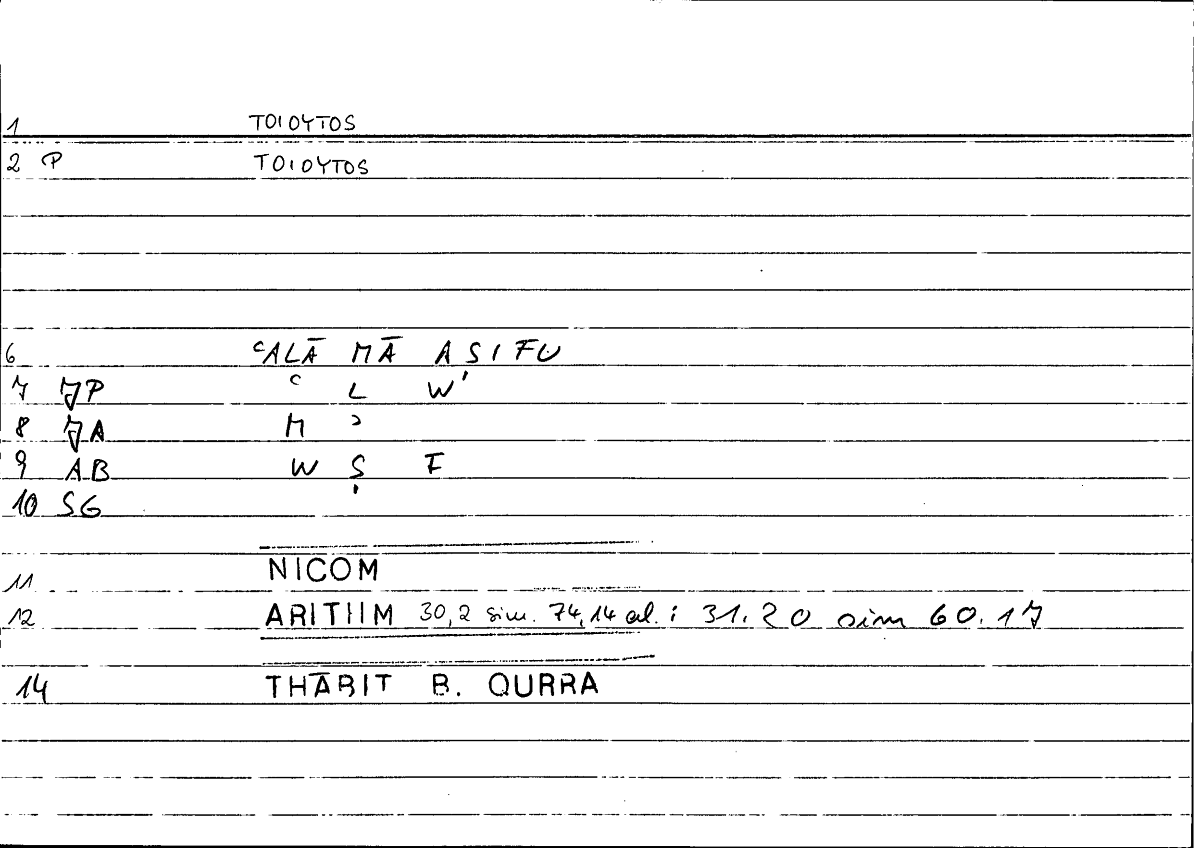 1 TOIOYTOS
2 P TOIOYTOS
6 ʿALĀ MĀ AṢIFU
7 JP ʿ L W'
8 JA M ʾ
9 AB W Ṣ F
10 SG
11 NICOM
12 ARITHM 30,2 sim. 74,14 al. ; 31.20 sim 60.17
14 THĀBIT B. QURRA